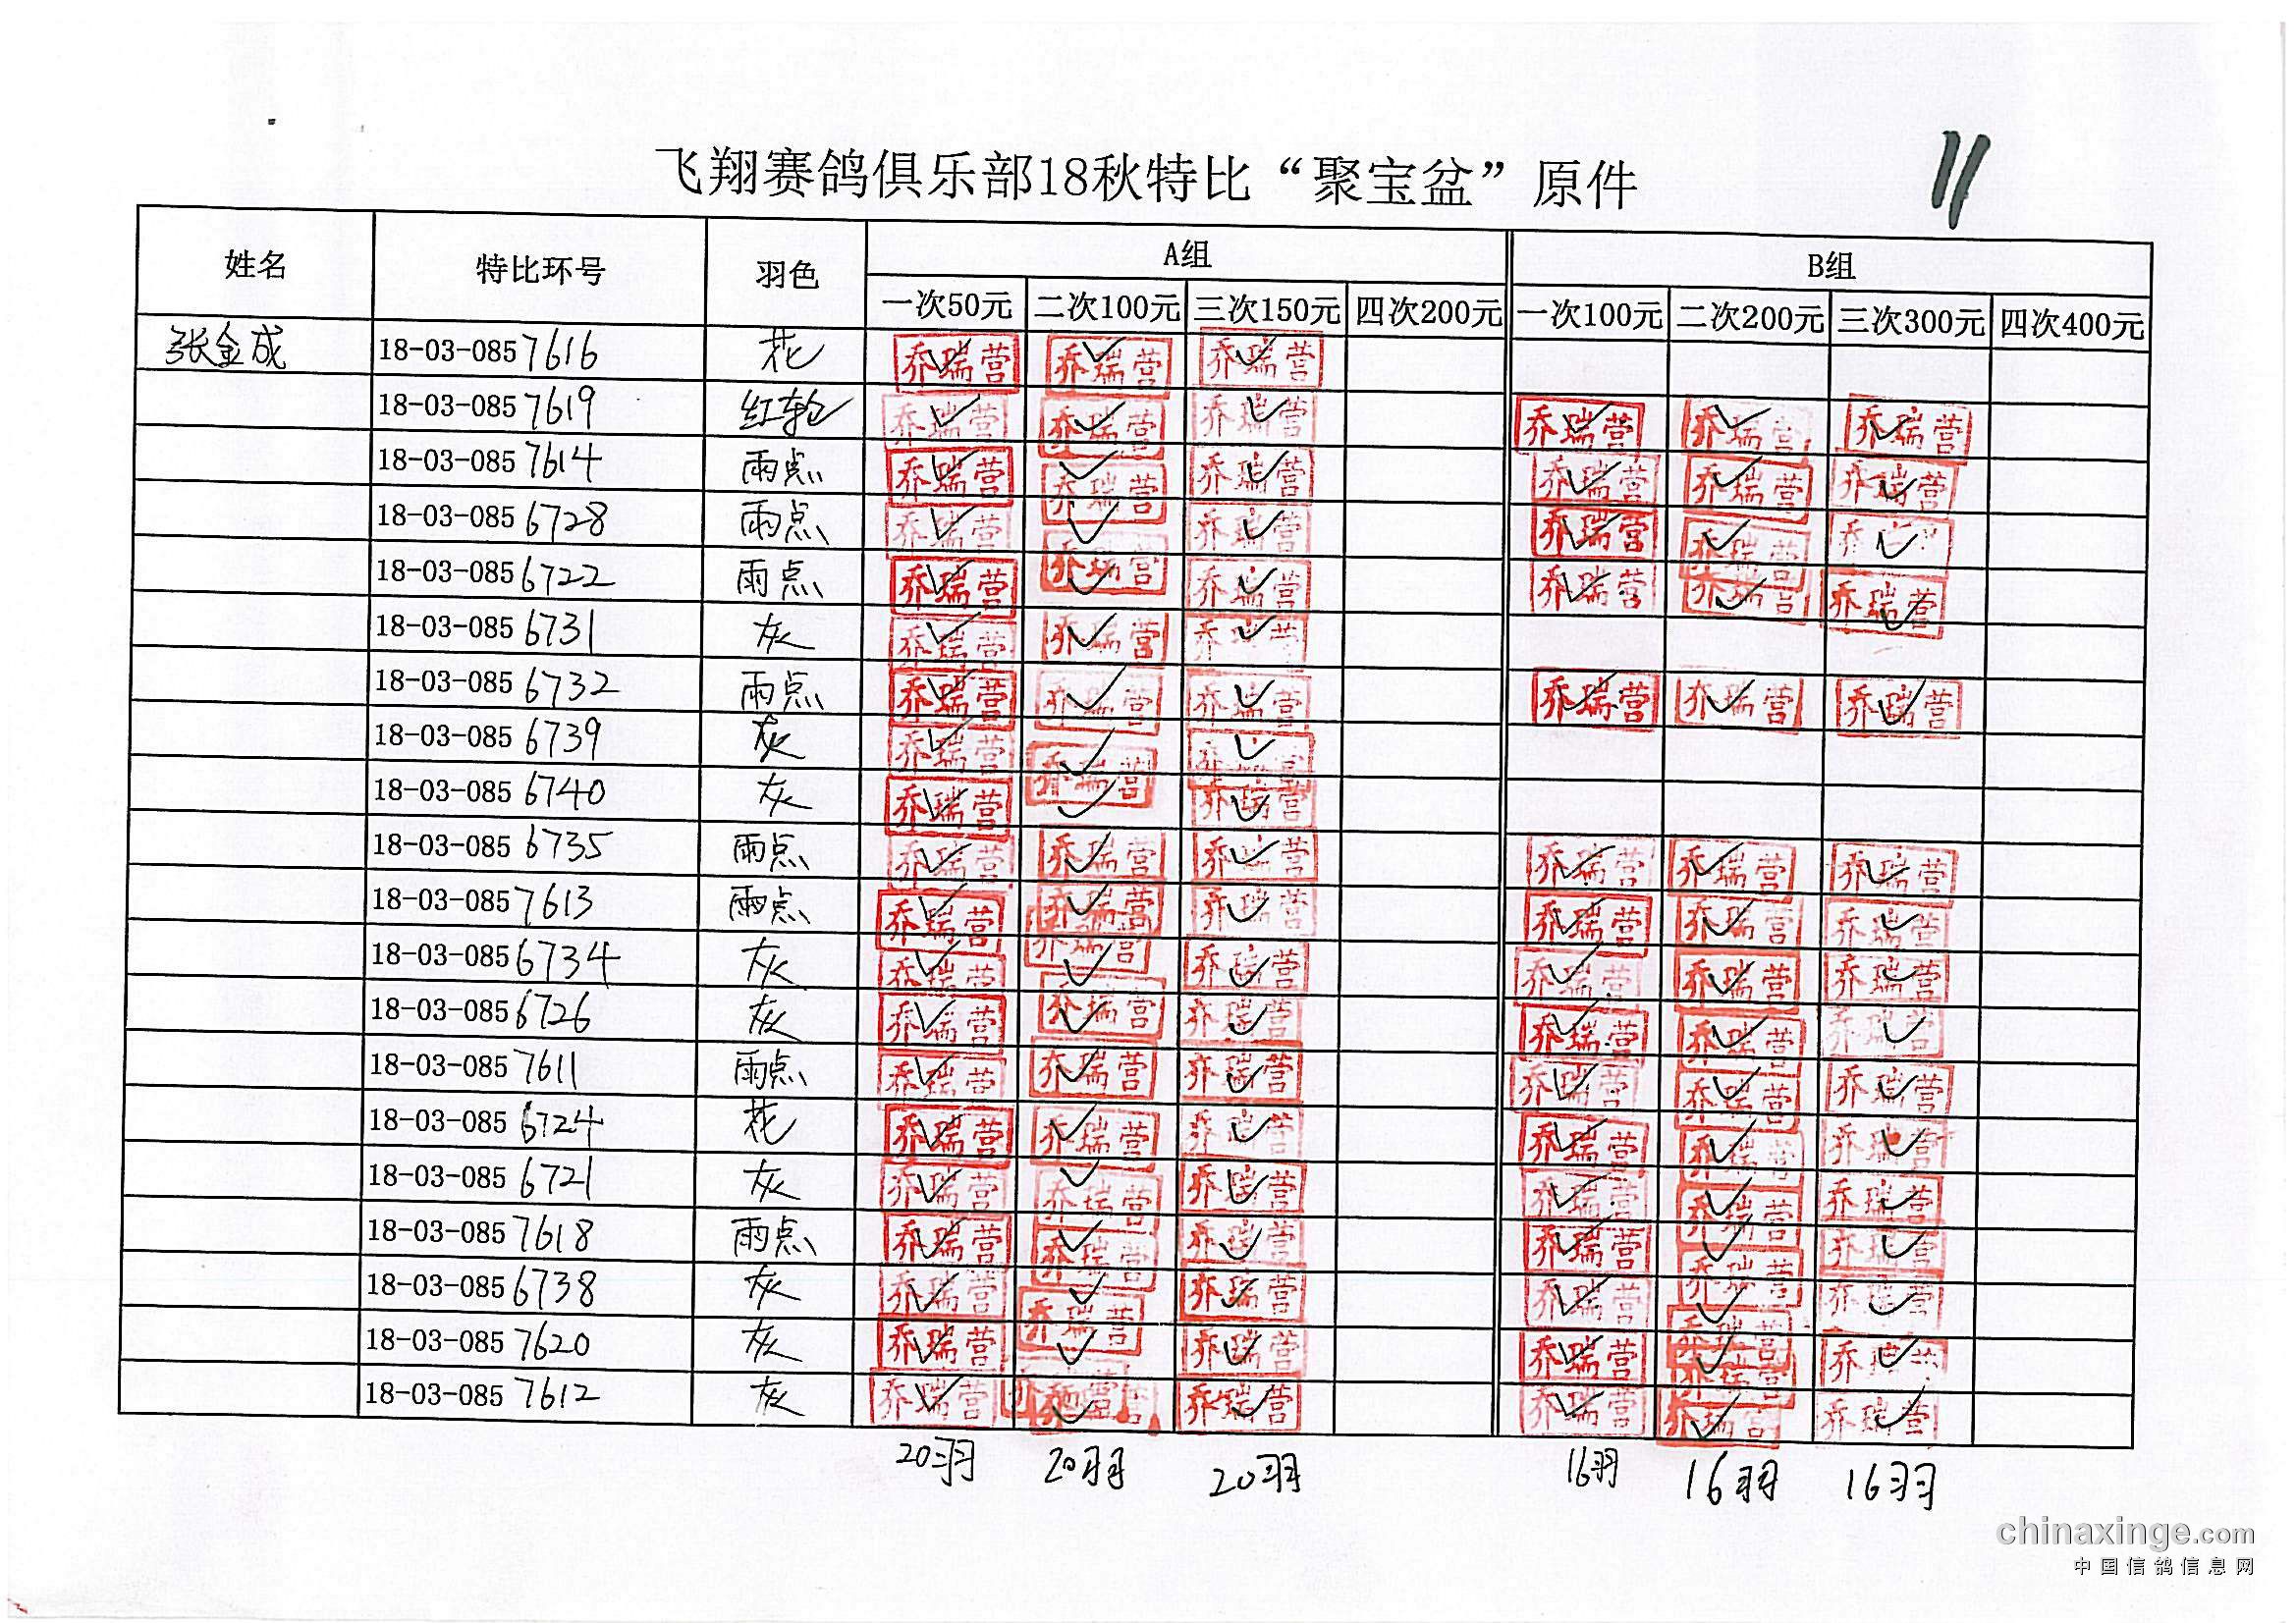 飞翔赛鸽俱乐部18秋特比“聚宝盆”原件 11
姓名 特比环号 羽色 A组 B组
一次50元 二次100元 三次150元 四次200元 一次100元 二次200元 三次300元 四次400元
张金成 18-03-0857616 花 乔瑞营✓ 乔瑞营✓ 乔瑞营✓
18-03-0857619 红轮 乔瑞营✓ 乔瑞营✓ 乔瑞营✓ 乔瑞营✓ 乔瑞营✓ 乔瑞营✓
18-03-0857614 雨点 乔瑞营✓ 乔瑞营✓ 乔瑞营✓ 乔瑞营✓ 乔瑞营✓ 乔瑞营✓
18-03-0856728 雨点 乔瑞营✓ ✓ 乔瑞营✓ 乔瑞营✓ 乔瑞营✓ 乔瑞营✓
18-03-0856722 雨点 乔瑞营✓ 乔瑞营✓ 乔瑞营✓ 乔瑞营✓ 乔瑞营✓ 乔瑞营✓
18-03-0856731 灰 乔瑞营✓ 乔瑞营✓ 乔瑞营✓
18-03-0856732 雨点 乔瑞营✓ 乔瑞营✓ 乔瑞营✓ 乔瑞营✓ 乔瑞营✓ 乔瑞营✓
18-03-0856739 灰 乔瑞营✓ 乔瑞营✓ 乔瑞营✓
18-03-0856740 灰 乔瑞营✓ ✓ 乔瑞营✓
18-03-0856735 雨点 乔瑞营✓ 乔瑞营✓ 乔瑞营✓ 乔瑞营✓ 乔瑞营✓ 乔瑞营✓
18-03-0857613 雨点 乔瑞营✓ 乔瑞营✓ 乔瑞营✓ 乔瑞营✓ 乔瑞营✓ 乔瑞营✓
18-03-0856734 灰 乔瑞营✓ 乔瑞营✓ 乔瑞营✓ 乔瑞营✓ 乔瑞营✓ 乔瑞营✓
18-03-0856726 灰 乔瑞营✓ 乔瑞营✓ 乔瑞营✓ 乔瑞营✓ 乔瑞营✓ 乔瑞营✓
18-03-0857611 雨点 乔瑞营✓ 乔瑞营✓ 乔瑞营✓ 乔瑞营✓ 乔瑞营✓ 乔瑞营✓
18-03-0856724 花 乔瑞营✓ 乔瑞营✓ 乔瑞营✓ 乔瑞营✓ 乔瑞营✓ 乔瑞营✓
18-03-0856721 灰 乔瑞营✓ 乔瑞营✓ 乔瑞营✓ 乔瑞营✓ 乔瑞营✓ 乔瑞营✓
18-03-0857618 雨点 乔瑞营✓ 乔瑞营✓ 乔瑞营✓ 乔瑞营✓ 乔瑞营✓ 乔瑞营✓
18-03-0856738 灰 乔瑞营✓ 乔瑞营✓ 乔瑞营✓ 乔瑞营✓ 乔瑞营✓ 乔瑞营✓
18-03-0857620 灰 乔瑞营✓ ✓ 乔瑞营✓ 乔瑞营✓ 乔瑞营✓ 乔瑞营✓
18-03-0857612 灰 乔瑞营✓ 乔瑞营✓ 乔瑞营✓ 乔瑞营✓ 乔瑞营✓ 乔瑞营✓
20羽 20羽 20羽 16羽 16羽 16羽
chinaxinge.com
中国信鸽信息网